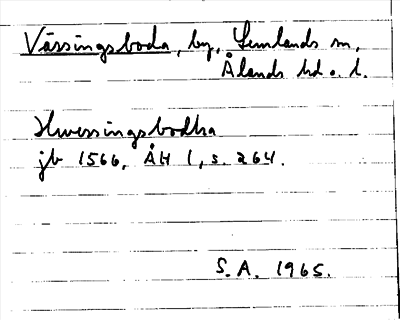 Vässingsboda, by, Lemlands sn,
Ålands hd o. l.
Hwessingsbodha
jb 1566, ÅH 1, s. 264.
S.A. 1965.